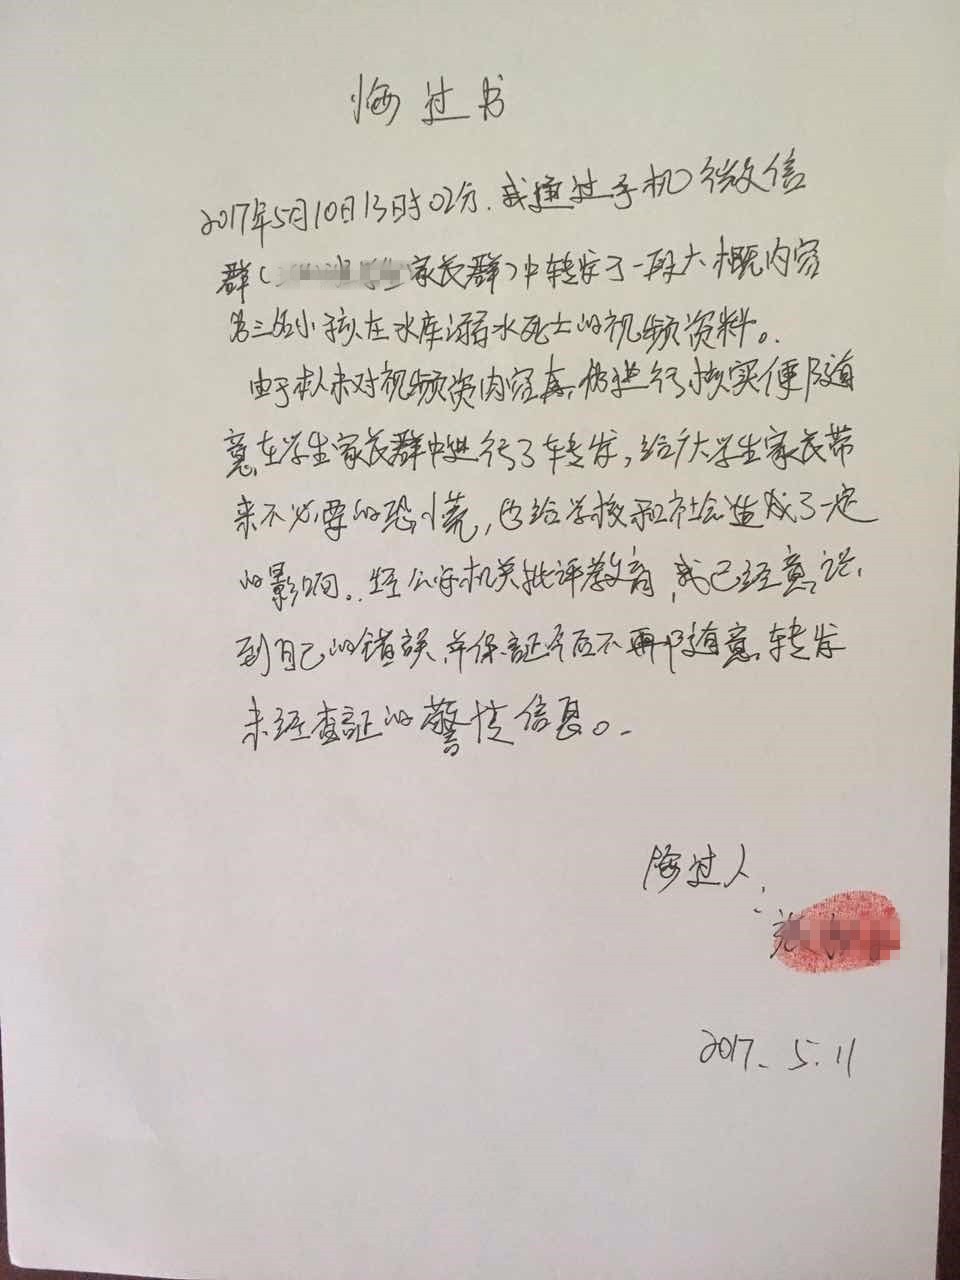 悔过书
2017年5月10日13时02分.我通过手机微信
群(家长群)中转发了一段大概内容
为三名小孩在水库溺水死亡的视频资料。
由于本人未对视频资内容真伪进行核实便随
意在学生家长群中进行了转发,给广大学生家长带
来不必要的恐慌,也给学校和社会造成了一定
的影响。经公安机关批评教育,我已经意识
到自己的错误,并保证今后不再随意转发
未经查证的警情信息。
悔过人:
2017.5.11